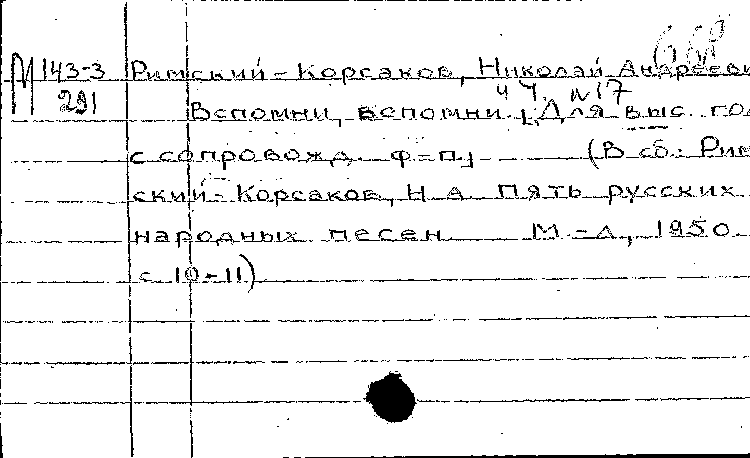 М 143-3 Римский-Корсаков, Николай Андрееви
291 Вспомни, вспомни [Для выс. гол
N17
с сопровожд. ф-п] (В сб: Рим
ский-Корсаков, Н А Пять русских
народных песен М-Л, 1950
с 10-11)